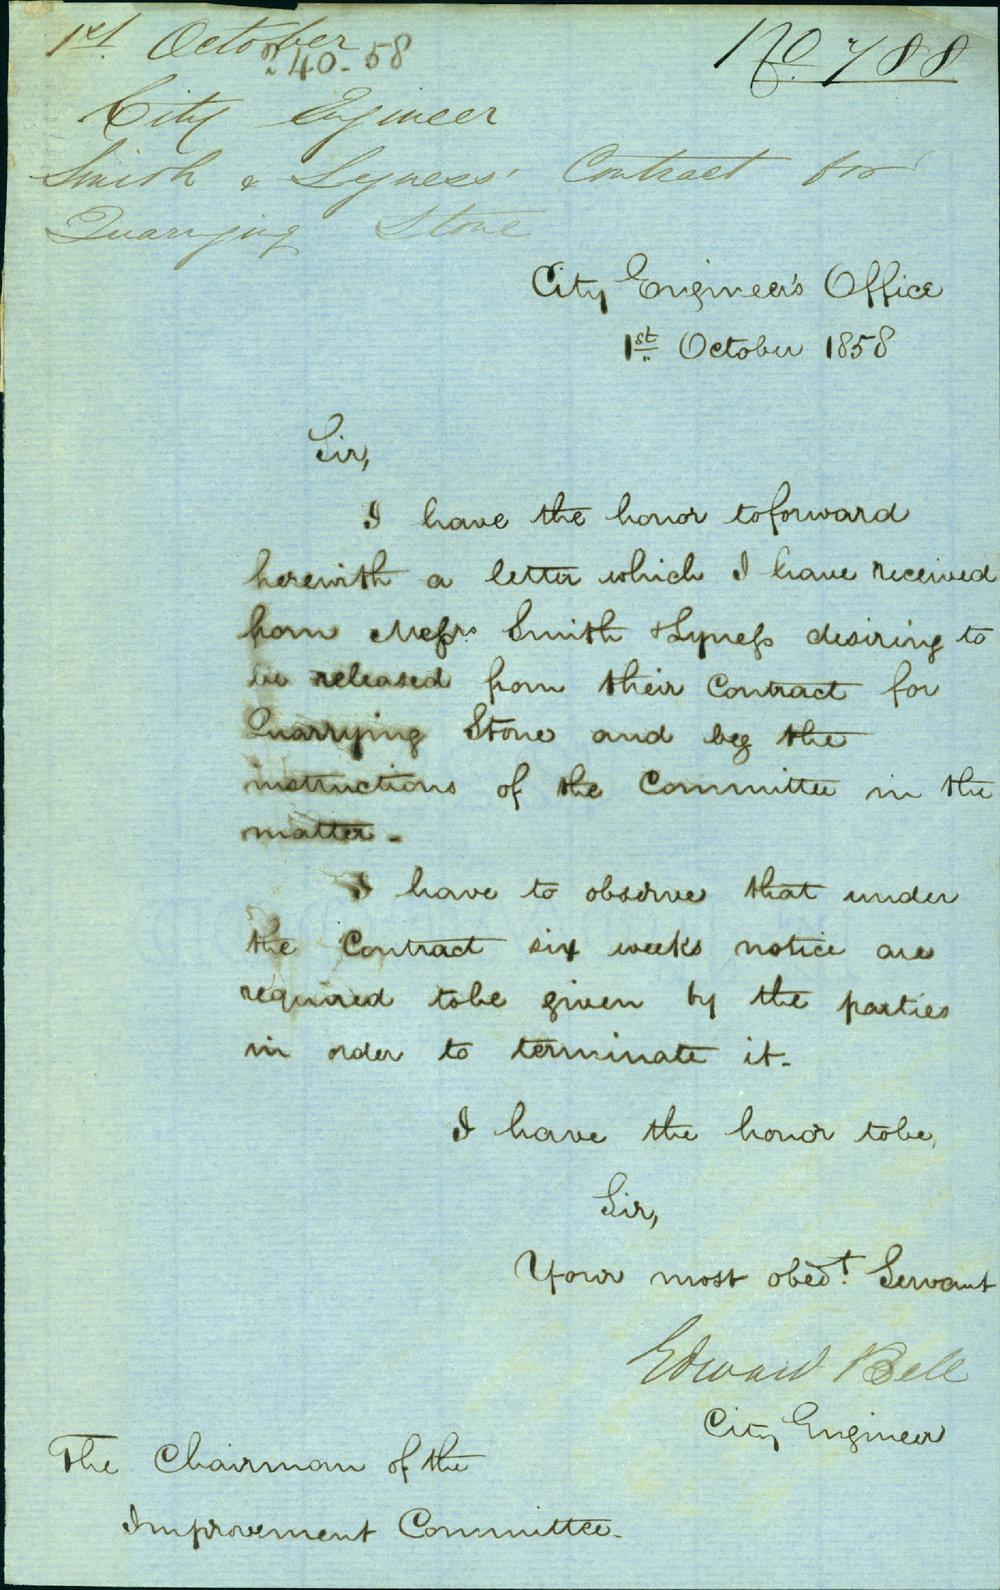 1st. October
No. 788
240-58
City Engineer
Smith & Lyness' Contract for
Quarrying Stone
City Engineer's Office
1st October 1858
Sir,
I have the honor to forward
herewith a letter which I have received
from Messrs Smith & Lyness desiring to
be released from their Contract for
Quarrying Stone and beg the
instructions of the Committee in the
matter -
I have to observe that under
the Contract six weeks notice are
required to be given by the parties
in order to terminate it -
I have the honor to be,
Sir,
Your most obedt. Servant
Edward Bell
City Engineer
The Chairman of the
Improvement Committee -